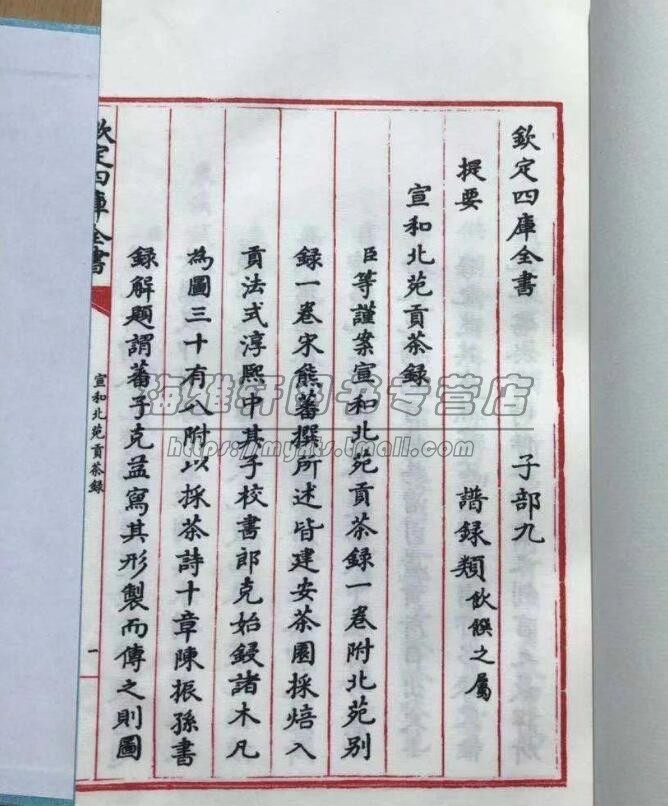 欽定四庫全書 子部九
提要 譜録類飲饌之屬
宣和北苑貢茶録
臣等謹案宣和北苑貢茶録一卷附北苑別
録一卷宋熊蕃撰所述皆建安茶園採焙入
貢法式淳熙中其子校書郎克始鋟諸木凡
為圖三十有八附以採茶詩十章陳振孫書
録解題謂蕃子克益寫其形製而傳之則圖
欽定四庫全書
宣和北苑貢茶録
一
海雄轩图书专营店